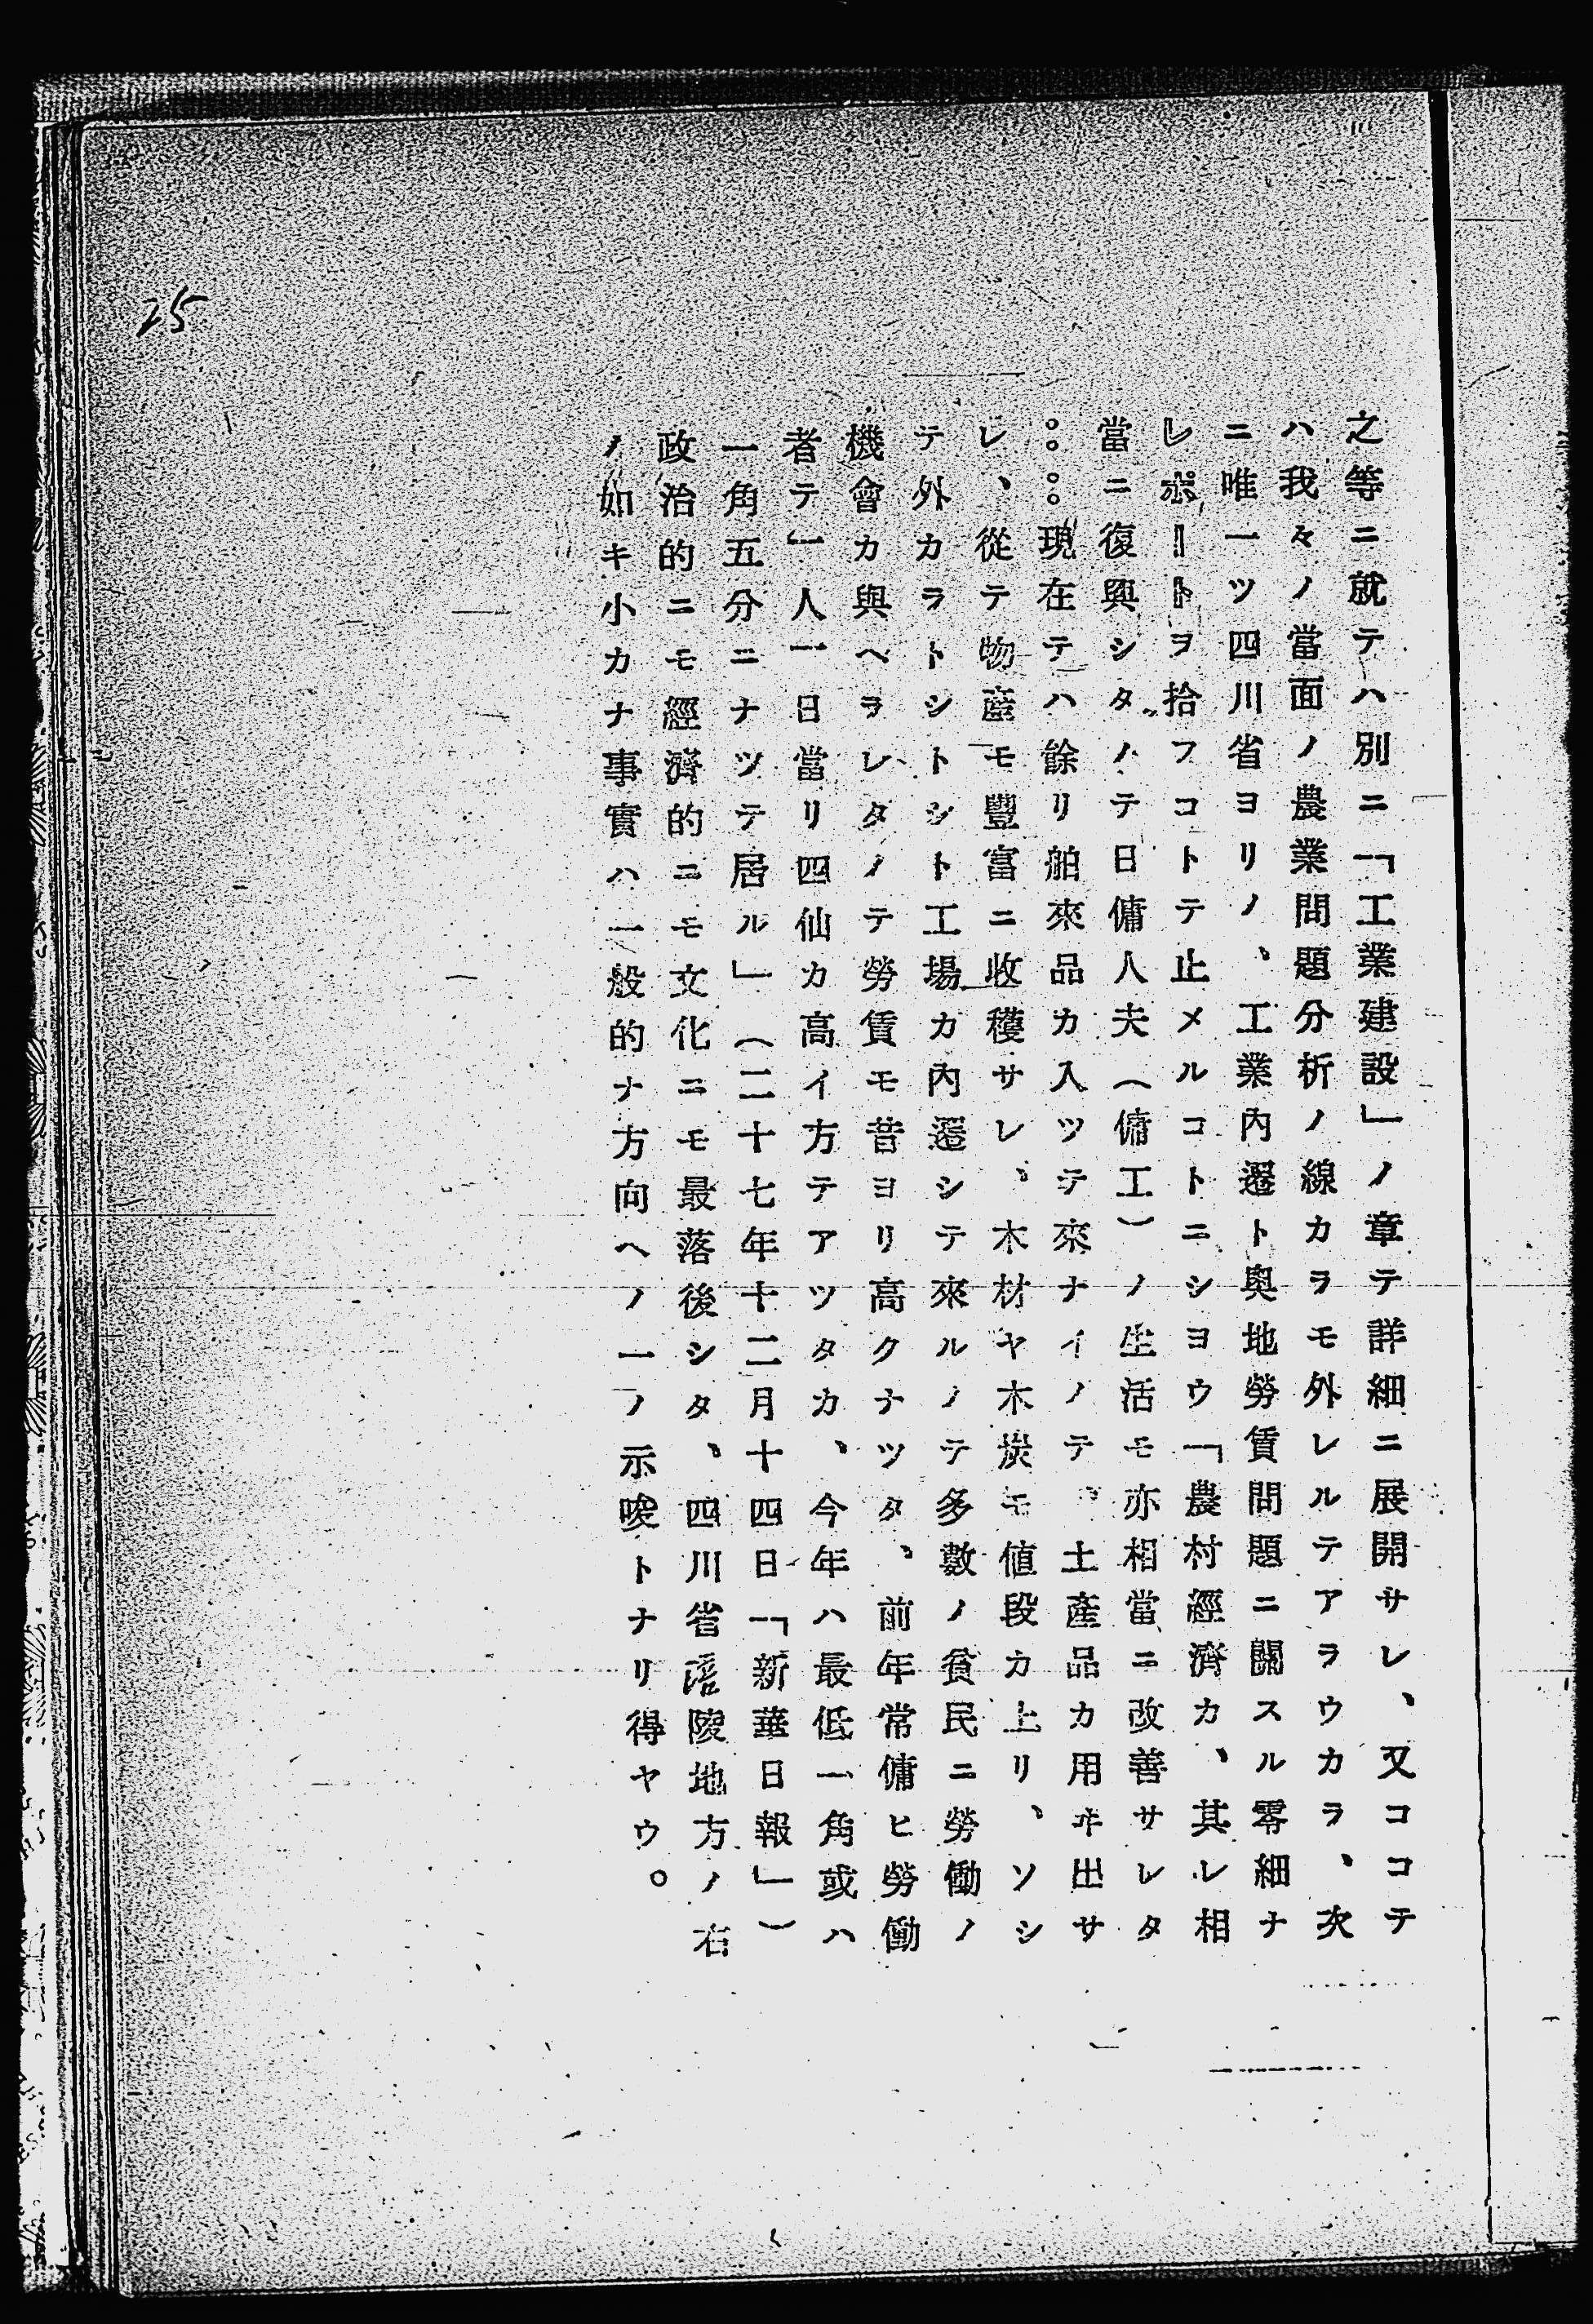 之等ニ就テハ別ニ「工業建設」ノ章テ詳細ニ展開サレ、又ココテ
ハ我々ノ當面ノ農業問題分析ノ線カラモ外レルテアラウカラ、次
ニ唯一ツ四川省ヨリノ、工業內遷ト奧地勞賃問題ニ關スル零細ナ
レポートヲ拾フコトテ止メルコトニシヨウ「農村經濟カ、其レ相
當ニ復興シタノテ日傭人夫（傭工）ノ生活モ亦相當ニ改善サレタ
：：現在テハ餘リ舶來品カ入ツテ來ナイノテ、土產品カ用ヰ出サ
レ、從テ物產モ豐富ニ收穫サレ、木材ヤ木炭モ値段カ上リ、ソシ
テ外カラトシトシト工場カ內遷シテ來ルノテ多數ノ貧民ニ勞働ノ
機會カ與ヘラレタノテ勞賃モ昔ヨリ高クナツタ、前年常傭ヒ勞働
者テ一人一日當リ四仙カ高イ方テアツタカ、今年ハ最低一角或ハ
一角五分ニナツテ居ル」（二十七年十二月十四日「新華日報」）
政治的ニモ經濟的ニモ文化ニモ最落後シタ、四川省涪陵地方ノ右
ノ如キ小カナ事實ハ一般的ナ方向ヘノ一ノ示唆トナリ得ヤウ。
25